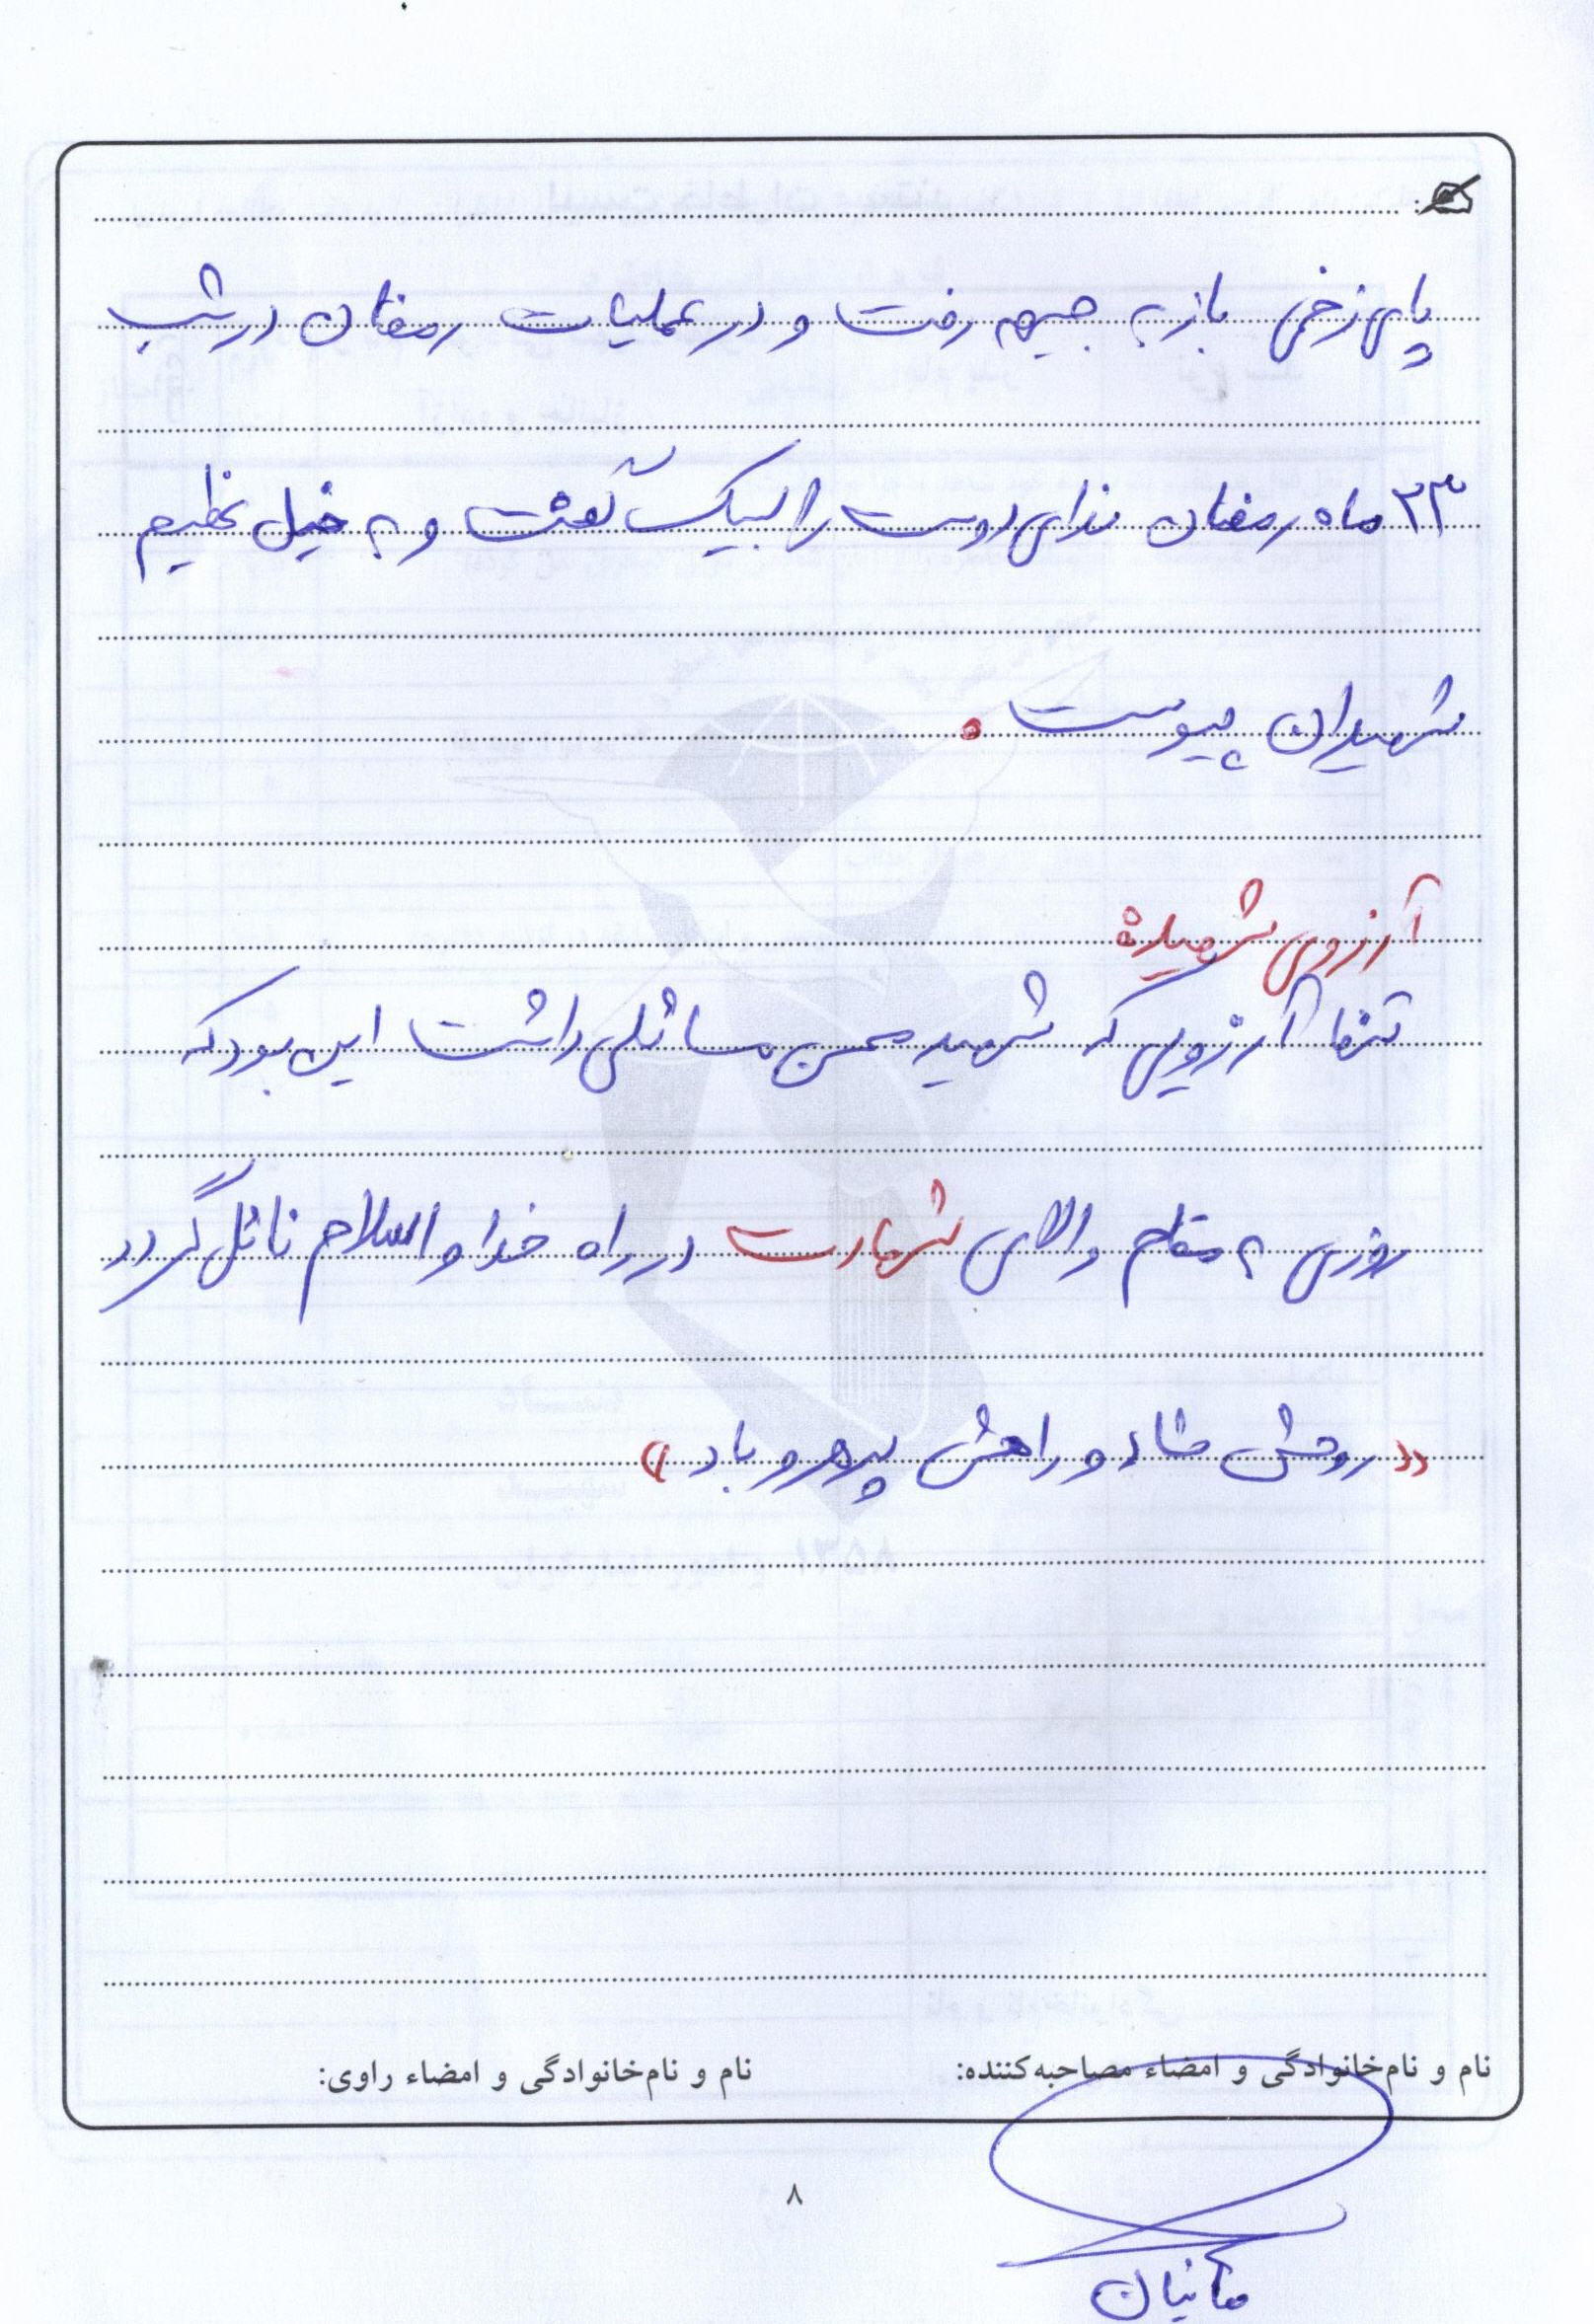 پای زخمی باز به جبهه رفت و در عملیات رمضان در شب
۲۳ ماه رمضان ندای دوست را لبیک گفت و به خیل عظیم
شهیدان پیوست.
آرزوی شهید:
تنها آرزویی که شهید محسن مسائلی داشت این بود که
روزی به مقام والای شهادت در راه خدا و اسلام نائل گردد
«روحش شاد و راهش پر رهرو باد»
نام و نام‌خانوادگی و امضاء مصاحبه‌کننده:
نام و نام‌خانوادگی و امضاء راوی:
۸